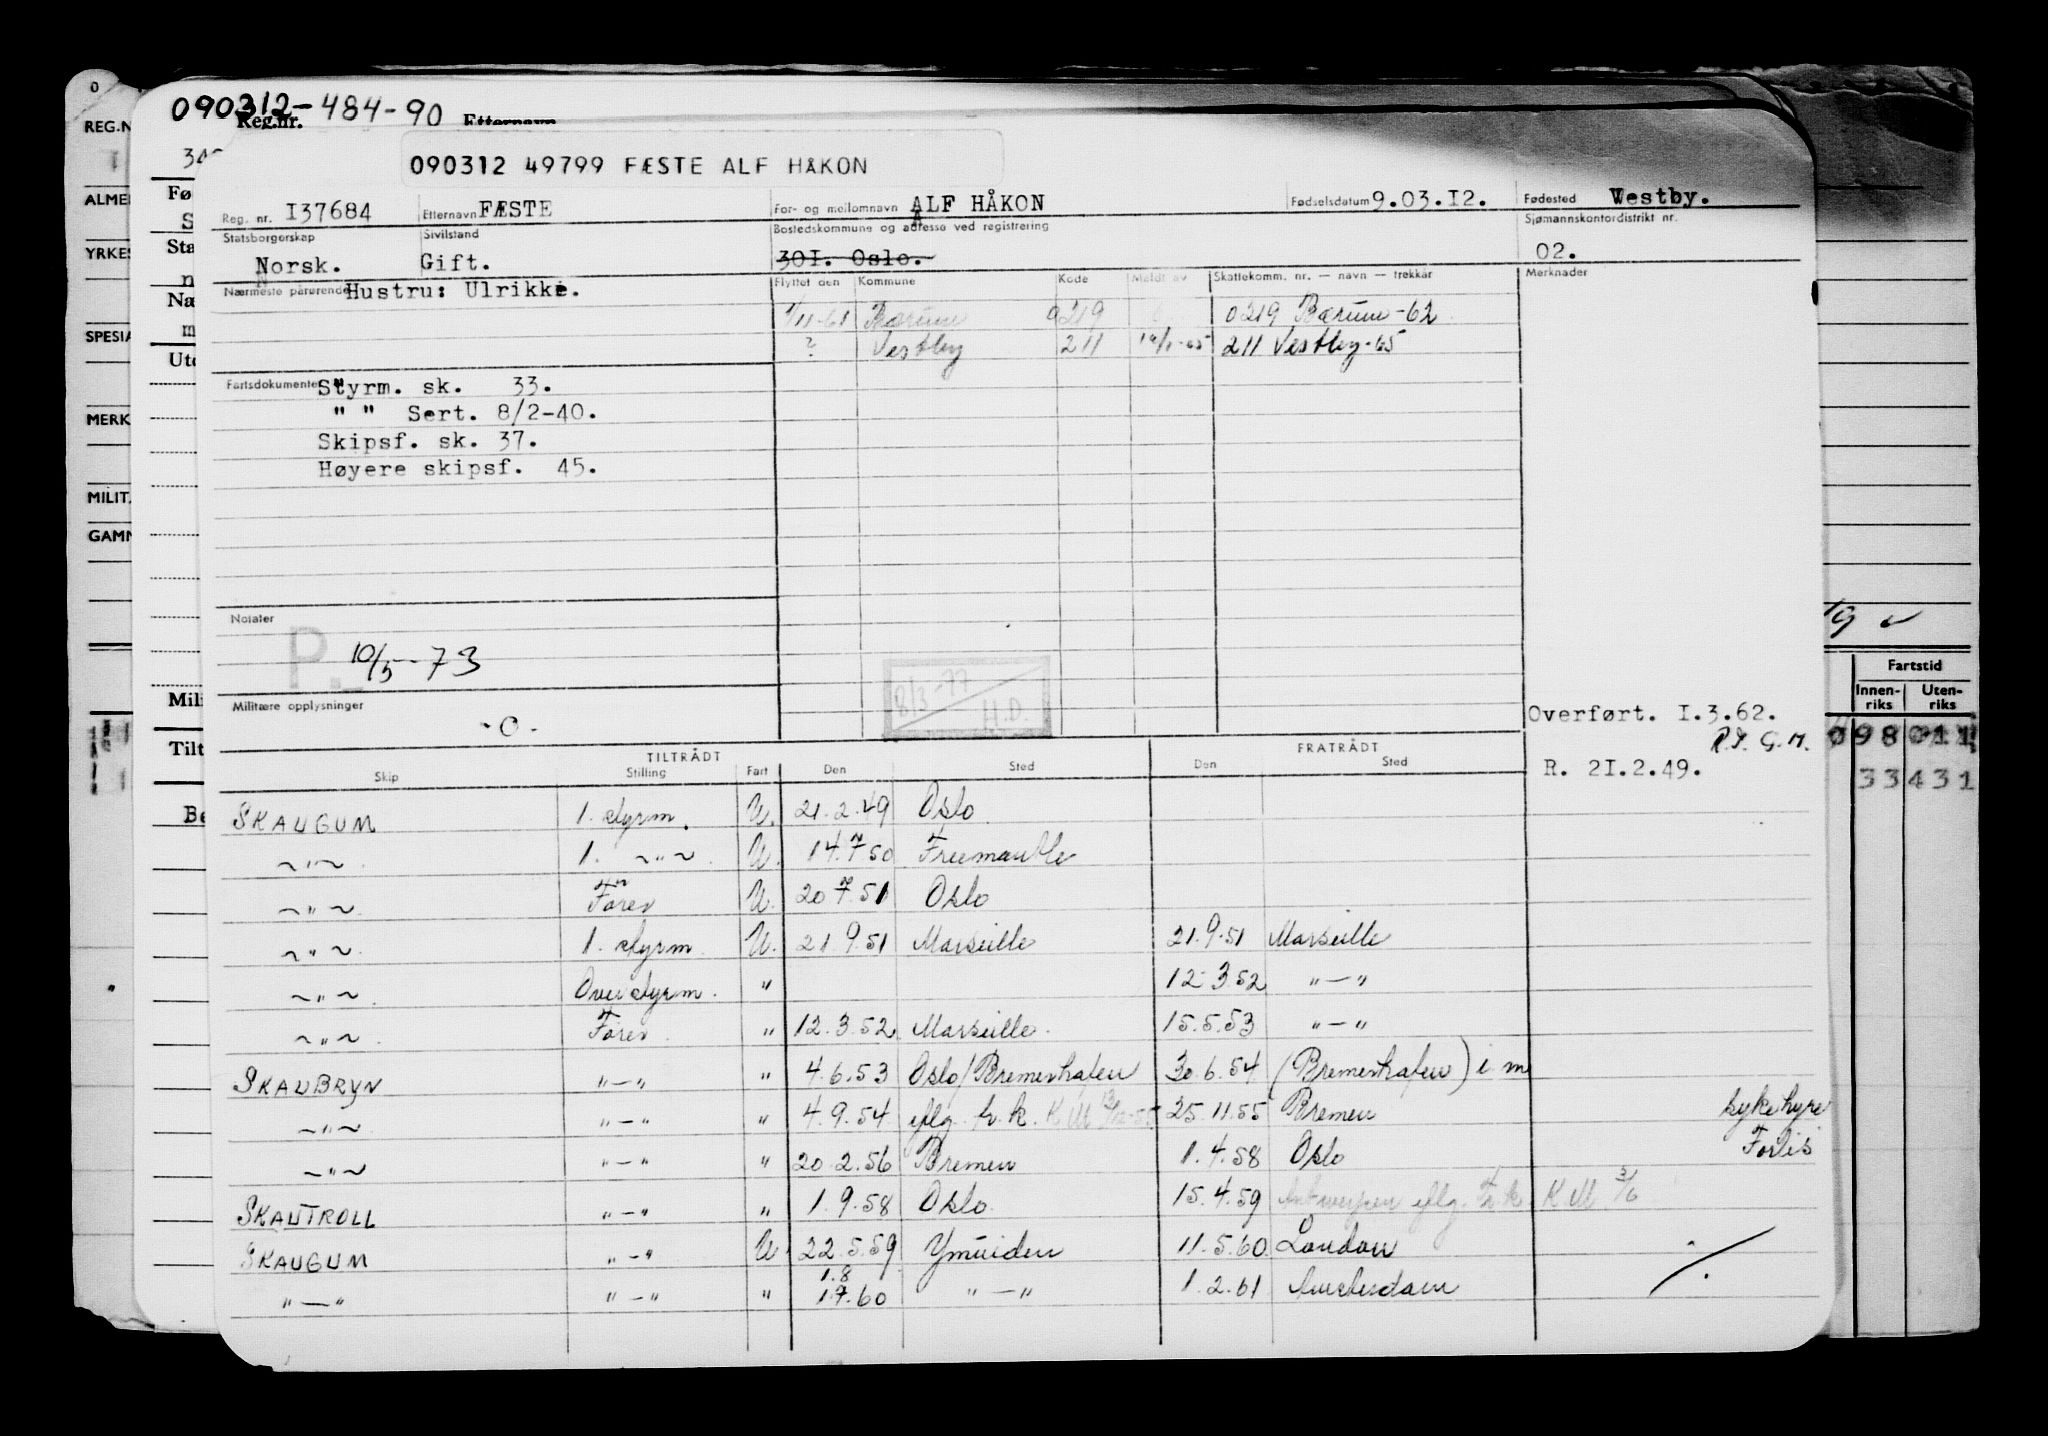 090312-484-90
Reg.nr. Etternavn
090312 49799 FÆSTE ALF HÅKON
Reg. nr. I37684 Etternavn FÆSTE For- og mellomnavn ALF HÅKON Fødselsdatum 9.03.I2. Fødested Westby.
Statsborgerskap Sivilstand Bostedskommune og adresse ved registrering Sjømannskontordistrikt nr.
Norsk. Gift. 30I. Oslo. 02.
Nærmeste pårørende Hustru: Ulrikke. Flyttet den Kommune Kode Meldt av Skattekomm. nr. — navn — trekkår Merknader
1/11-61 Bærum 0219 0219 Bærum-62
? Vestby 211 211 Vestby-65
Fartsdokumenter Styrm. sk. 33.
" " Sert. 8/2-40.
Skipsf. sk. 37.
Høyere skipsf. 45.
Notater
P. 10/5-73
8/3-77 H.D.
Militære opplysninger -O-
Overført. I.3.62.
R. 2I.2.49.
TILTRÅDT FRATRÅDT
Skip Stilling Fart Den Sted Den Sted
SKAUGUM 1. styrm. U. 21.2.49 Oslo
~"~ 1. ~"~ U. 14.7.50 Freemantle
~"~ Fører U. 20.7.51 Oslo
~"~ 1. styrm U. 21.9.51 Marseille 21.9.51 Marseille
~"~ Overstyrm. " 12.3.52 "—"
~"~ Fører " 12.3.52 Marseille. 15.5.53 "—"
SKAUBRYN "—" " 4.6.53 Oslo/Bremerhafen 30.6.54 (Bremerhafen) i m
~"~ "—" " 4.9.54 iflg. t.k. K M 25.11.55 Bremen sykehyre
~"~ "—" " 20.2.56 Bremen 1.4.58 Oslo Forlis
SKAUTROLL "—" " 1.9.58 Oslo. 15.4.59 Antwerpen iflg. t.k. K M 3/6
SKAUGUM "—" U. 22.5.59 Ymuiden 11.5.60 London
"—" "—" " 1.8 1.7.60 "—" 1.2.61 Amsterdam
REG.N
ALMEN
YRKES
SPESIA
MERK
MILIT.
GAMM
Fartstid
Innen-riks Uten-riks
098 011
33431